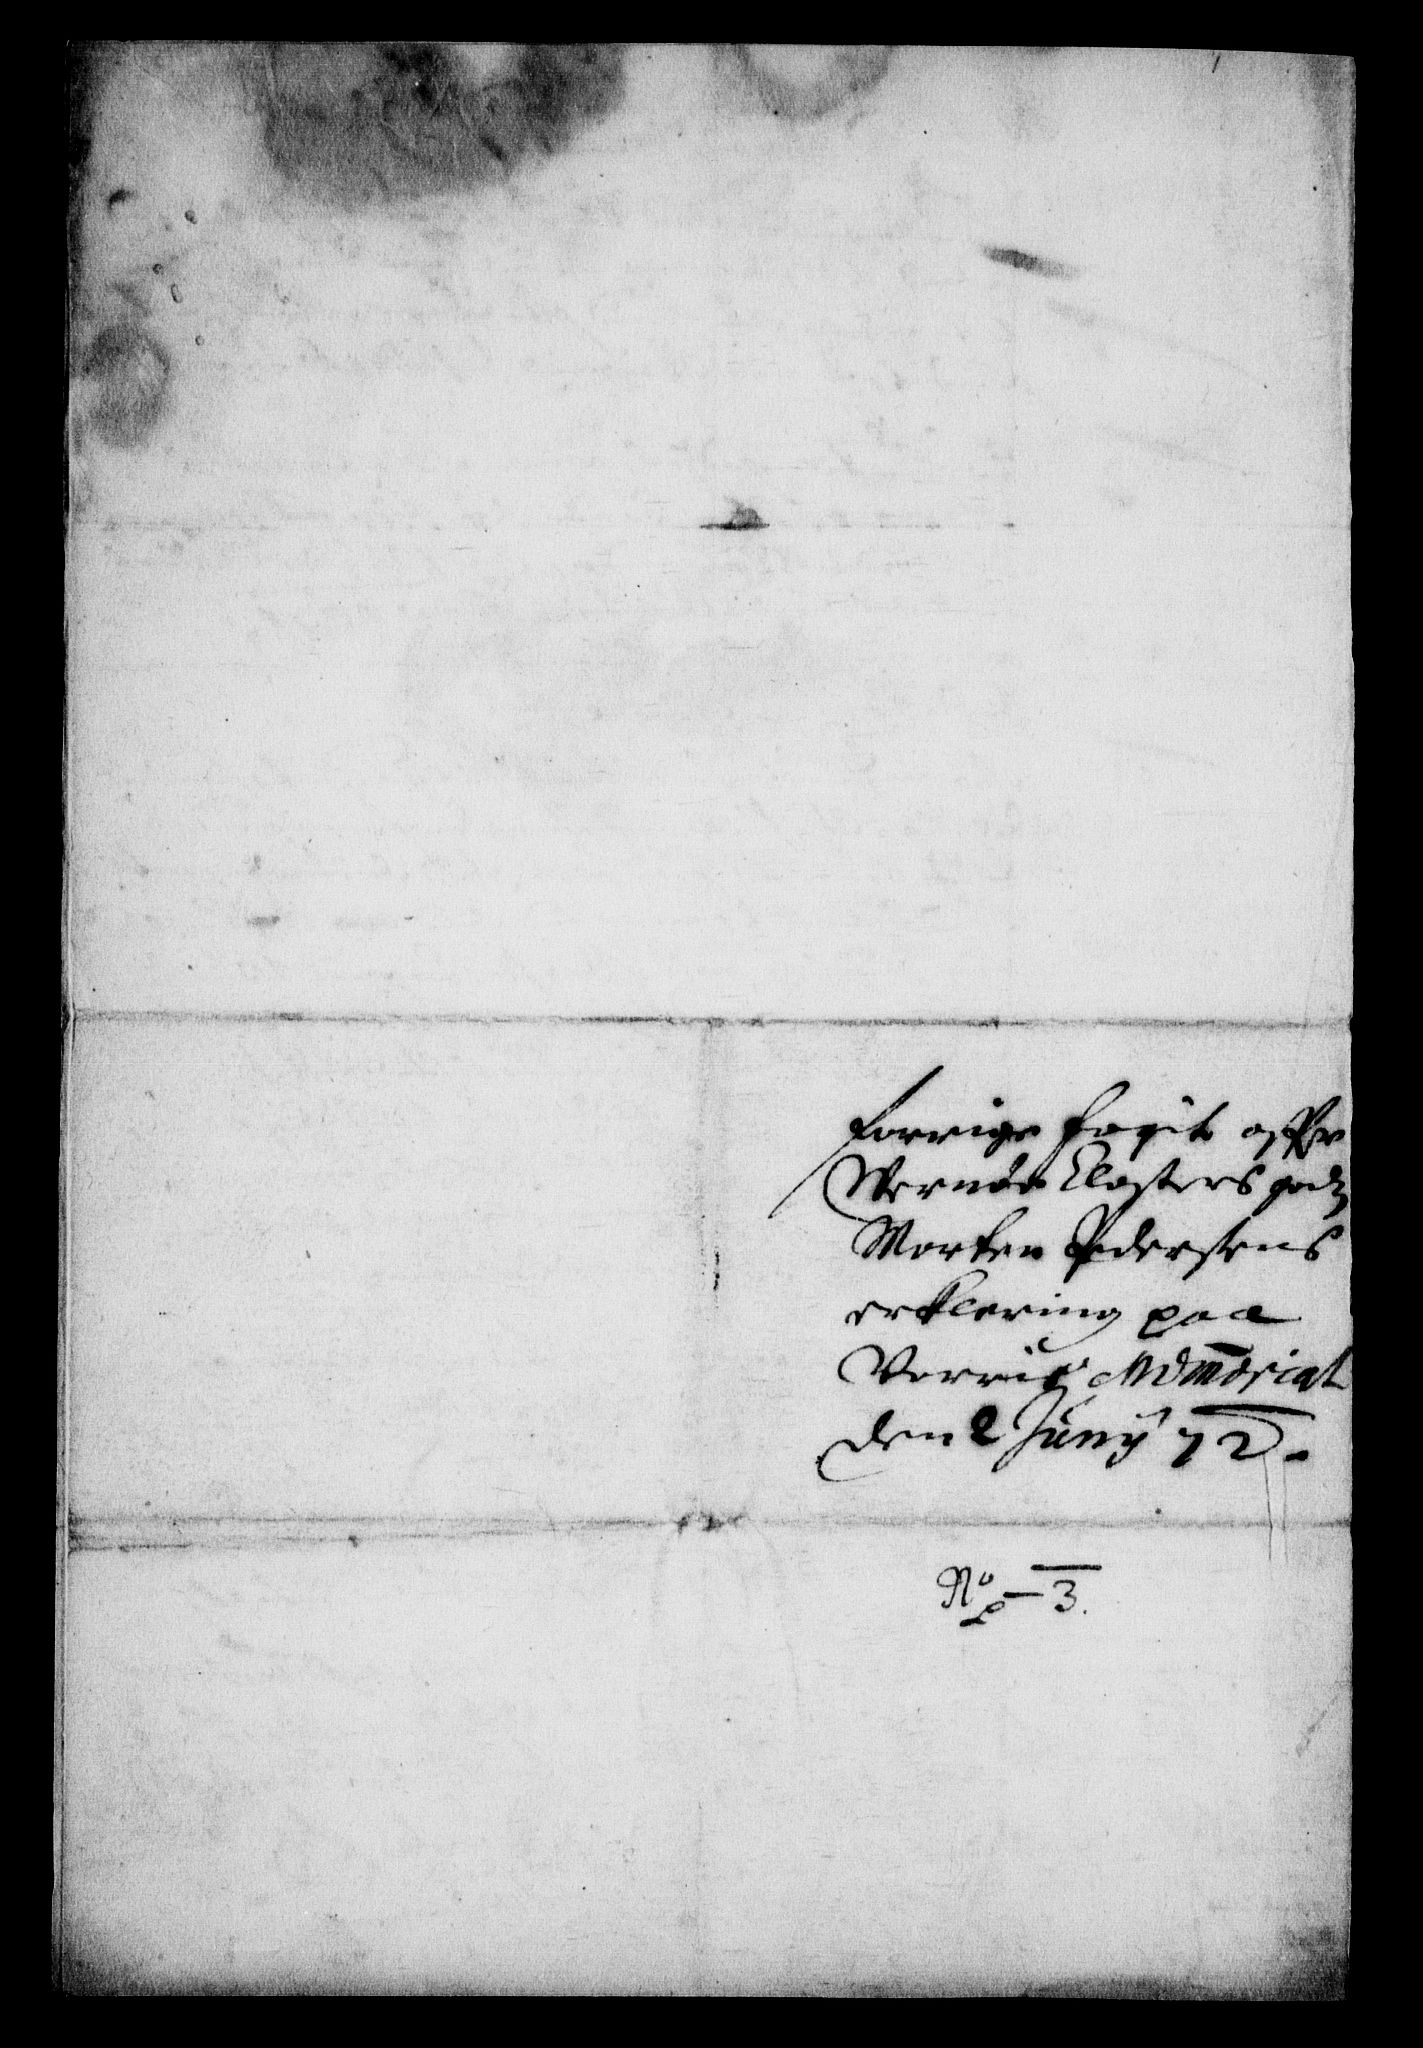 forrige fogit offr
Wernøe Closters godz
Morten Pedersens
erklering paa
Verris Memorial
den 2 Junij 72.
No 3.